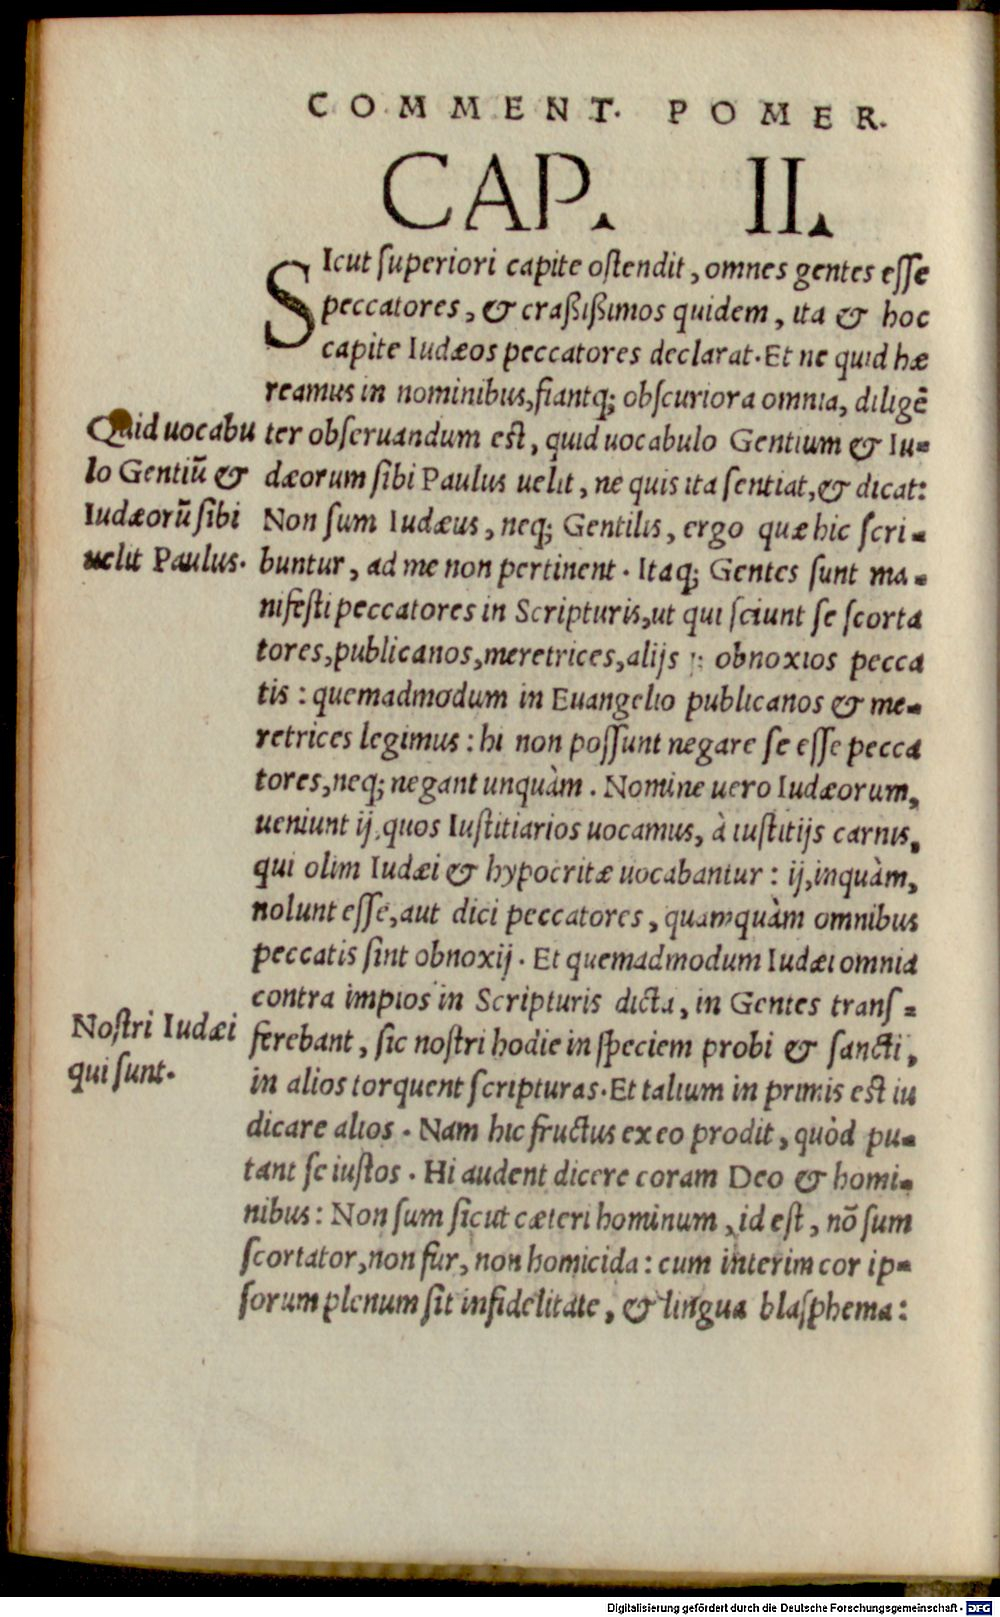 COMMENT. POMER.
CAP. II.
SIcut superiori capite ostendit, omnes gentes esse
peccatores, & craßißimos quidem, ita & hoc
capite Iudæos peccatores declarat. Et ne quid hæ
reamus in nominibus, fiantq; obscuriora omnia, diligẽ
ter obseruandum est, quid uocabulo Gentium & Iu-
dæorum sibi Paulus uelit, ne quis ita sentiat, & dicat:
Non sum Iudæus, neq; Gentilis, ergo quæ hic scri-
buntur, ad me non pertinent. Itaq; Gentes sunt ma-
nifesti peccatores in Scripturis, ut qui sciunt se scorta
tores, publicanos, meretrices, alijs obnoxios pecca
tis: quemadmodum in Euangelio publicanos & me-
retrices legimus: hi non possunt negare se esse pecca
tores, neq; negant unquàm. Nomine uero Iudæorum,
ueniunt ij, quos Iustitiarios uocamus, à iustitijs carnis,
qui olim Iudæi & hypocritæ uocabantur: ij, inquàm,
nolunt esse, aut dici peccatores, quamquàm omnibus
peccatis sint obnoxij. Et quemadmodum Iudæi omnia
contra impios in Scripturis dicta, in Gentes trans-
ferebant, sic nostri hodie in speciem probi & sancti,
in alios torquent scripturas. Et talium in primis est iu
dicare alios. Nam hic fructus ex eo prodit, quòd pu-
tant se iustos. Hi audent dicere coram Deo & homi-
nibus: Non sum sicut cæteri hominum, id est, nõ sum
scortator, non fur, non homicida: cum interim cor ip-
sorum plenum sit infidelitate, & lingua blasphema:
Quid uocabu
lo Gentiũ &
Iudæorũ sibi
uelit Paulus.
Nostri Iudæi
qui sunt.
Digitalisierung gefördert durch die Deutsche Forschungsgemeinschaft - DFG